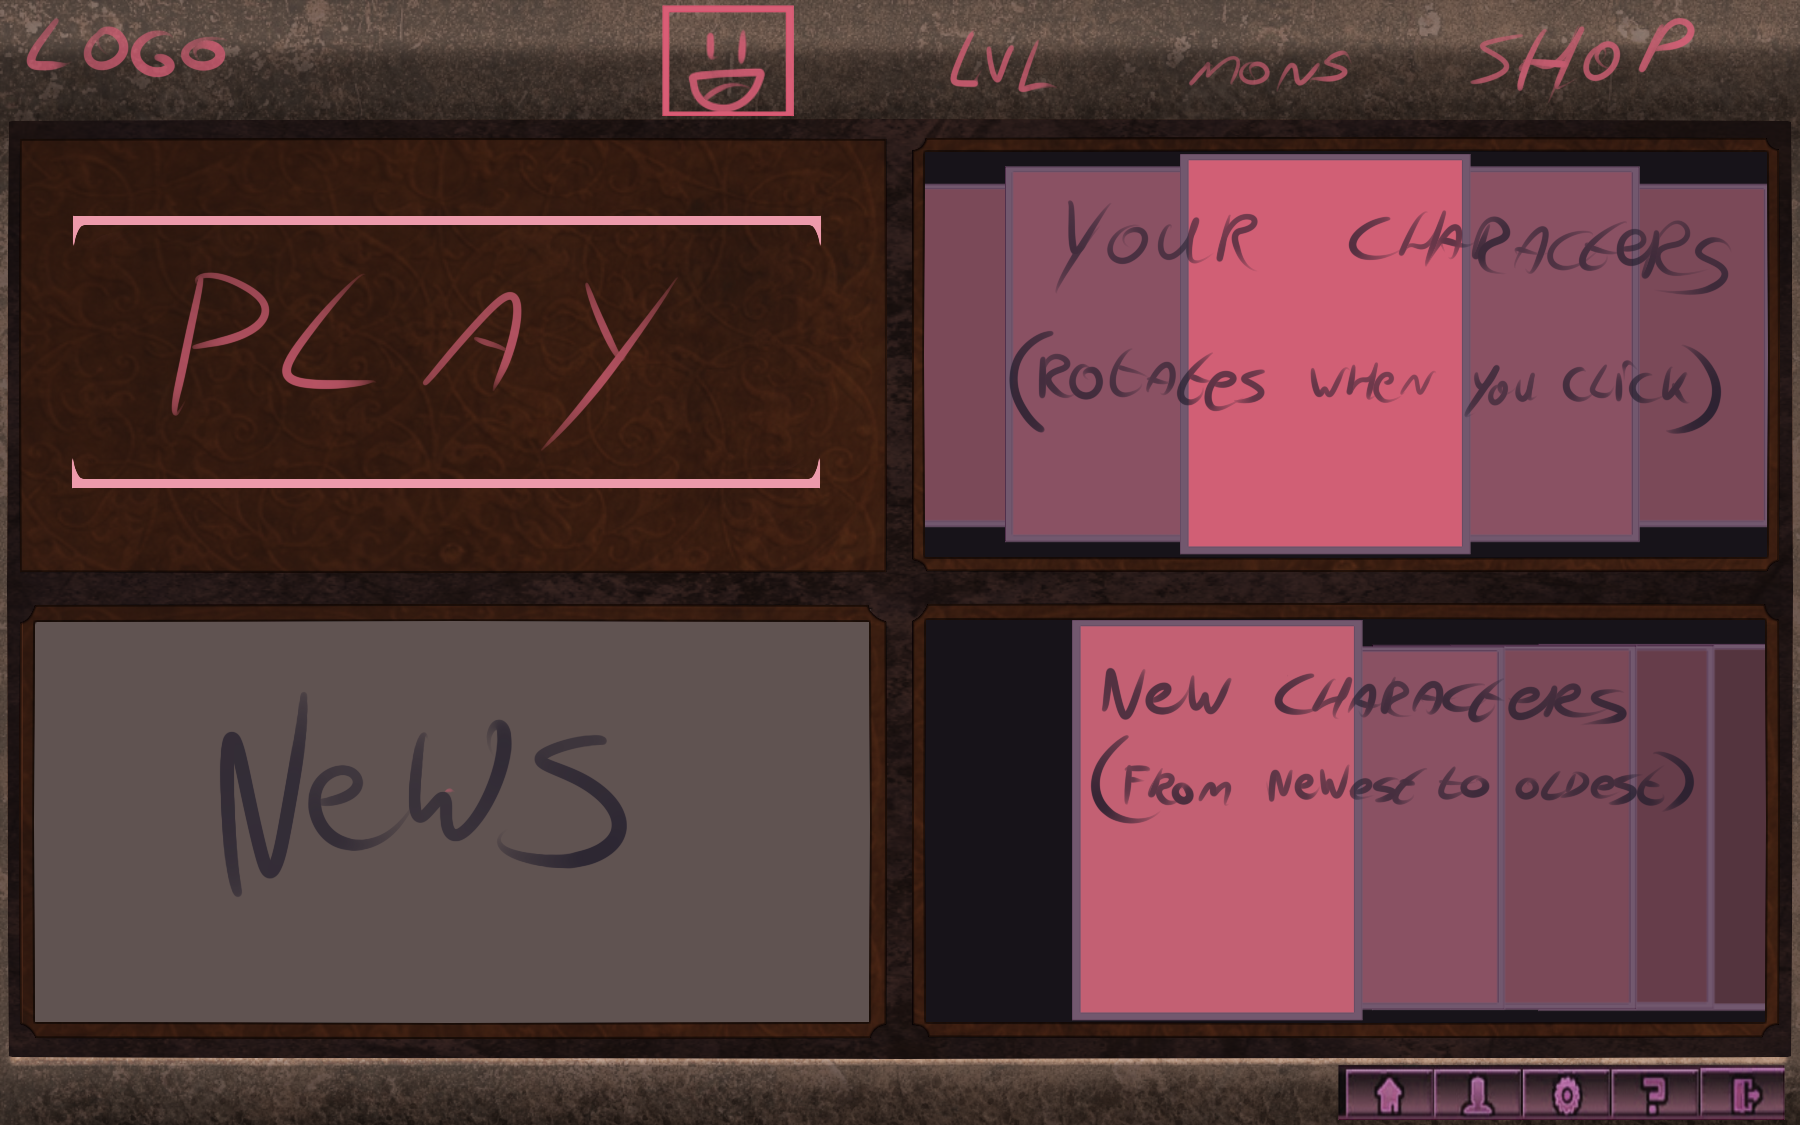 LOGO
LVL
MONS
SHOP
PLAY
YOUR CHARACTERS
(ROTATES WHEN YOU CLICK)
NEWS
NEW CHARACTERS
(FROM NEWEST TO OLDEST)
?